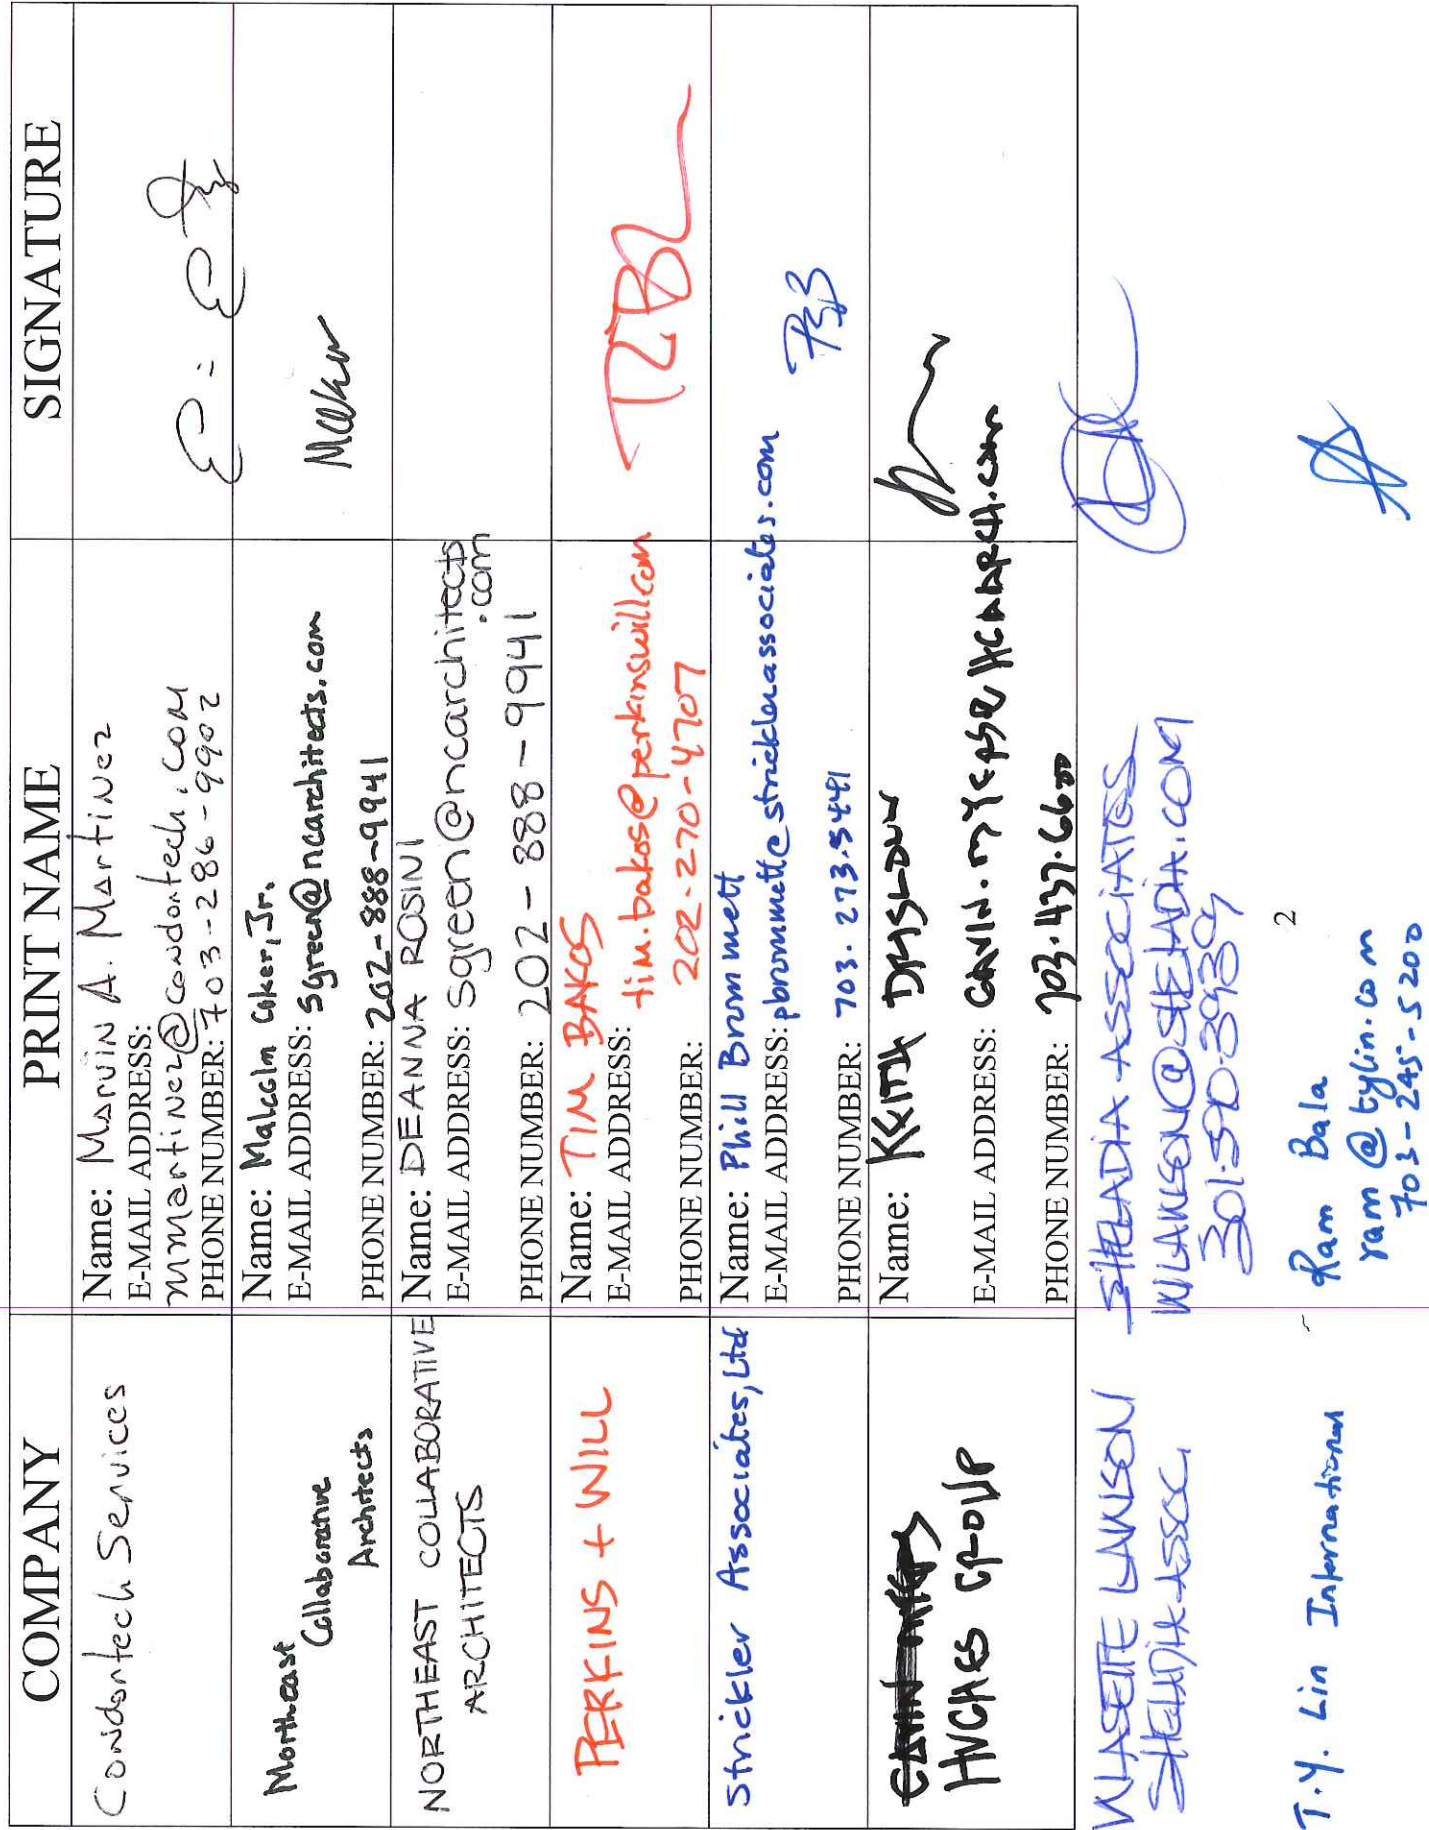 COMPANY
PRINT NAME
SIGNATURE
Condortech Services
Name: Marvin A. Martinez
E-MAIL ADDRESS:
mmartinez@condortech.com
PHONE NUMBER: 703-286-9902
Northeast
Collaborative
Architects
Name: Malcolm Coker, Jr.
E-MAIL ADDRESS: sgreen@ncarchitects.com
PHONE NUMBER: 202-888-9941
NORTHEAST COLLABORATIVE
ARCHITECTS
Name: DEANNA ROSINI
E-MAIL ADDRESS: sgreen@ncarchitects
.com
PHONE NUMBER: 202-888-9941
PERKINS + WILL
Name: TIM BAKOS
E-MAIL ADDRESS: tim.bakos@perkinswill.com
PHONE NUMBER: 202-270-4707
Strickler Associates, Ltd
Name: Phill Brummett
E-MAIL ADDRESS: pbrummett@stricklerassociates.com
PHONE NUMBER: 703.273.5441
HUGHES GROUP
Name: KEITH
E-MAIL ADDRESS:
PHONE NUMBER: 703.437.6600
LAWSON
SHELADIA ASSOC.
SHELADIA ASSOCIATES
WLAWSON@SHELADIA.COM
301.590.3939
2
T.Y. Lin International
Ram Bala
ram@tylin.com
703-245-5200